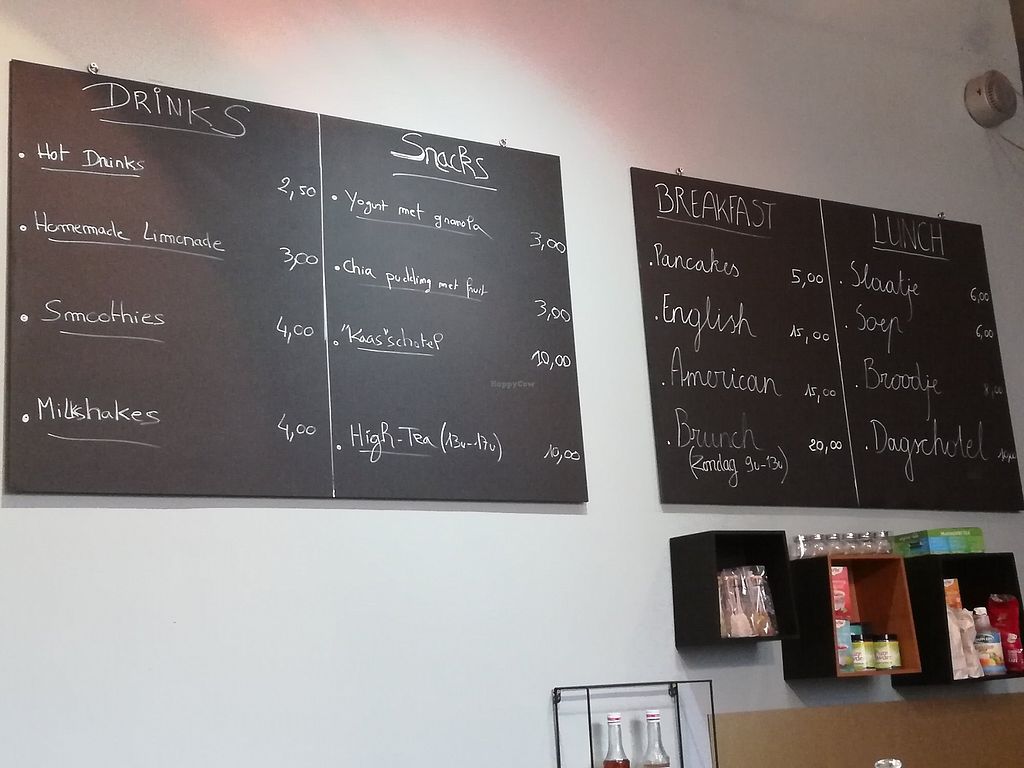 DRINKS
• Hot Drinks
2,50
• Homemade Limonade
3,00
• Smoothies
4,00
• Milkshakes
4,00
Snacks
• Yogurt met granola
3,00
• chia pudding met fruit
3,00
• "Kaas"schotel
10,00
• High-Tea (13u-17u)
10,00
HappyCow
BREAKFAST
• Pancakes 5,00
• English 15,00
• American 15,00
• Brunch 20,00
(Zondag 9u-13u)
LUNCH
• Slaatje 6,00
• Soep 6,00
• Broodje 8,00
• Dagschotel